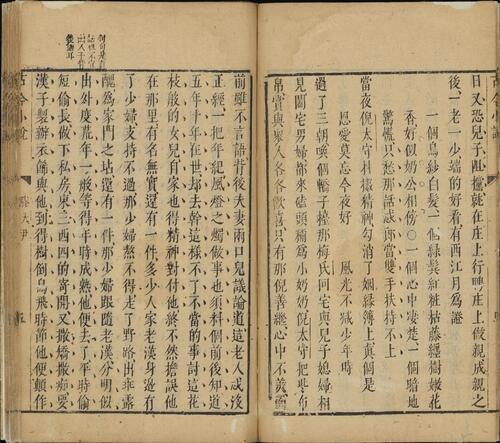 日又恐兒子阻擋就在庄上行聘庄上做親成親之
後一老一少端的好看有西江月為證
一個烏紗白髮一個綠鬢紅粧枯藤纏樹嫩花
香好似奶公相傍○一個心中凄楚一個暗地
驚慌只愁那話忒郎當雙手扶持不上
當夜倪太守抖擻精神勾消了姻緣簿上真個是
恩愛莫忘今夜好　風光不減少年時
過了三朝喚個轎子擡那梅氏回宅與兒子媳婦相
見闔宅男婦都來磕頭稱為小奶奶倪太守把些布
帛賞與眾人各各歡喜只有那倪善繼心中不美面
前雖不言語背後夫妻兩口兒議論道這老人忒沒
正經一把年紀風燈之燭做事也須料個前後知道
五年十年在世却去幹這樣不了不當的事討這花
枝般的女兒自家也得精神對付他終不然擔誤他
在那里有名無實還有一件多少人家老漢身邊有
了少婦支持不過那少婦熬不得走了野路出乖露
醜為家門之玷還有一件那少婦跟隨老漢分明似
出外度荒年一般等得年時成熟他便去了平時偷
短偷長做下私房東三西四的寄開又撒嬌撒痴要
漢子製辦衣飾與他到得樹倒鳥飛時節他便顛作
古今小說　滕大尹　五